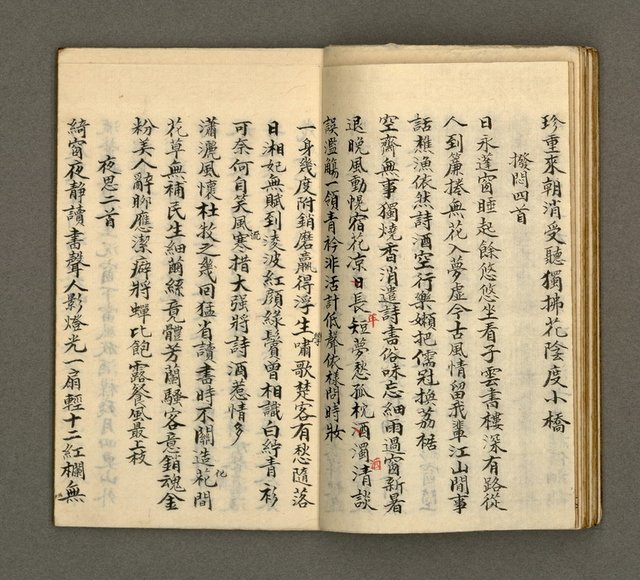 珍重來朝消受聽獨拂花陰度小橋
撥悶四首
日永蓬窗睡起餘悠悠坐看子雲書樓深有路從
人到簾捲無花入夢虛今古風情留我輩江山閒事
話樵漁依然詩酒空行樂嬾把儒冠換荔裾
空齋無事獨燒香消遣詩書俗味忘細雨過窗新暑
退晚風動幔宿花凉日長短夢愁孤枕酒濁清談
年
酒
誤濫觴一領青衿非活計低聲依樣問時妝
一身幾度附銷磨贏得浮生嘯歌楚客有愁隨落
學
日湘妃無賦到淩波紅顏綠鬢曾相識白紵青衫
可奈何自笑風寒措大强將詩酒惹情多
瀟灑風懷杜牧之幾回猛省讀書時不關造花間
化
花草無補民生細繭絲竟體芳蘭騷客意銷魂金
粉美人辭聊應潔癖將蟬比飽露餐風最上枝
夜思二首
綺窗夜靜讀書聲人影燈光一扇輕十二紅欄無